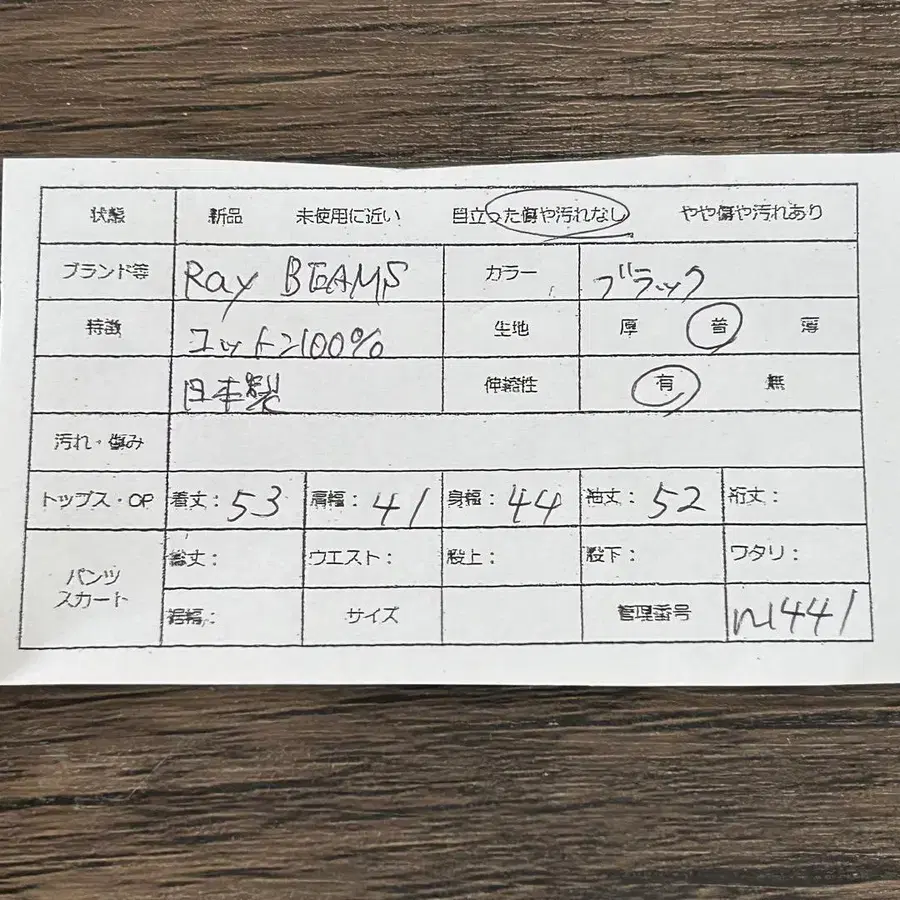 状態 新品 未使用に近い 目立った傷や汚れなし やや傷や汚れあり
ブランド等 Ray BEAMS カラー ブラック
特徴 コットン100% 生地 厚 普 薄
日本製 伸縮性 有 無
汚れ・傷み
トップス・OP 着丈: 53 肩幅: 41 身幅: 44 袖丈: 52 裄丈:
パンツ スカート 総丈: ウエスト: 股上: 股下: ワタリ:
裾幅: サイズ 管理番号 n1441